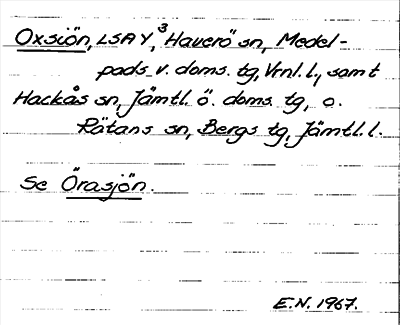 Oxsjön, LSA Y, ³Haverö sn, Medel-
pads v. doms. tg, Vrnl. l., samt
Hackås sn, Jämtl. ö. doms. tg, o.
Rätans sn, Bergs tg, Jämtl. l.
Se Örasjön.
E.N. 1967.